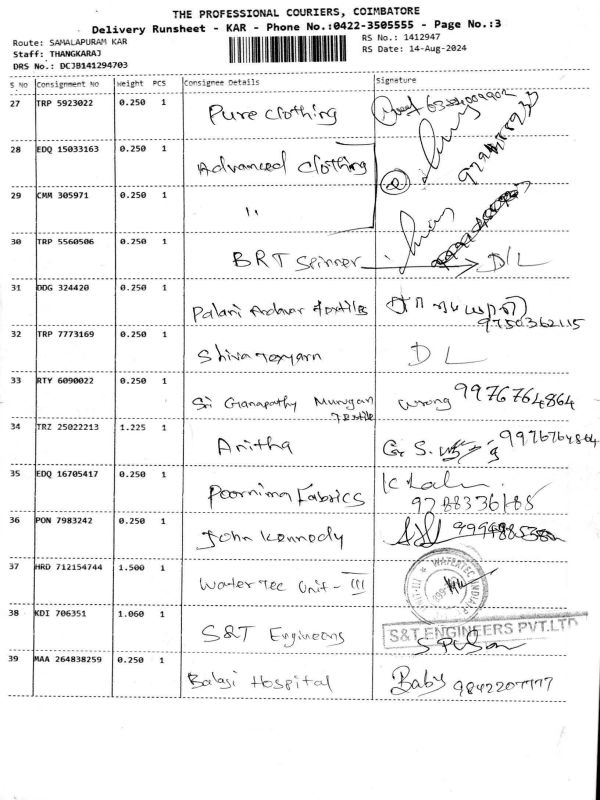 THE PROFESSIONAL COURIERS, COIMBATORE
Delivery Runsheet - KAR - Phone No.:0422-3505555 - Page No.:3
Route: SAMALAPURAM KAR
RS No.: 1412947
Staff: THANGKARAJ
RS Date: 14-Aug-2024
DRS No.: DCJB141294703
S No Consignment No Weight PCS Consignee Details Signature
27 TRP 5923022 0.250 1 Pure clothing
28 EDQ 15033163 0.250 1 Advanced clothing
29 CMM 305971 0.250 1 "
30 TRP 5560506 0.250 1 BRT Spinner D/L
31 DDG 324420 0.250 1 Palani
9750362115
32 TRP 7773169 0.250 1 D L
33 RTY 6090022 0.250 1 Sri Ganapathy Murugan Textile wrong 9976764864
34 TRZ 25022213 1.225 1 Anitha 9976764864
35 EDQ 16705417 0.250 1 Poornima Fabrics
36 PON 7983242 0.250 1 John Kennody
37 HRD 712154744 1.500 1 Water Tec Unit - III
38 KDI 706351 1.060 1 S&T Engineers
S&T ENGINEERS PVT.LTD
39 MAA 264838259 0.250 1 Balaji Hospital Baby 9842207777